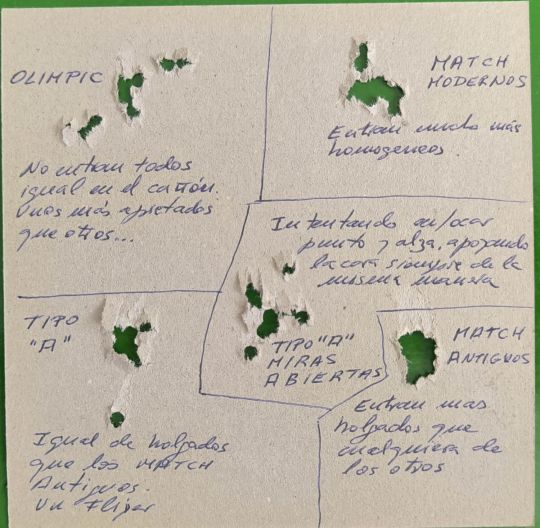 OLIMPIC
No entran todos
igual en el cañón.
Unos más apretados
que otros...
MATCH
MODERNOS
Entran mucho más
homogeneos
Intentando enfocar
punto y alza, apoyando
la cara siempre de la
misma manera
TIPO "A"
MIRAS
ABIERTAS
TIPO
"A"
Igual de holgados
que los MATCH
Antiguos.
Un Fliper
MATCH
ANTIGUOS
Entran mas
holgados que
cualquiera de
los otros